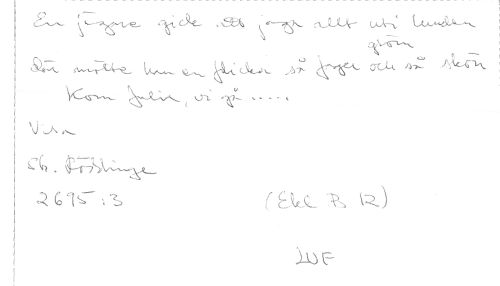 En jägare gick att jaga allt uti lunden
grön
där mötte han en flicka så fager och så skön
Kom Julia, vi gå.....
Visa
Sk. Rösslinge
2695:3 (Ekl B 12)
LUF